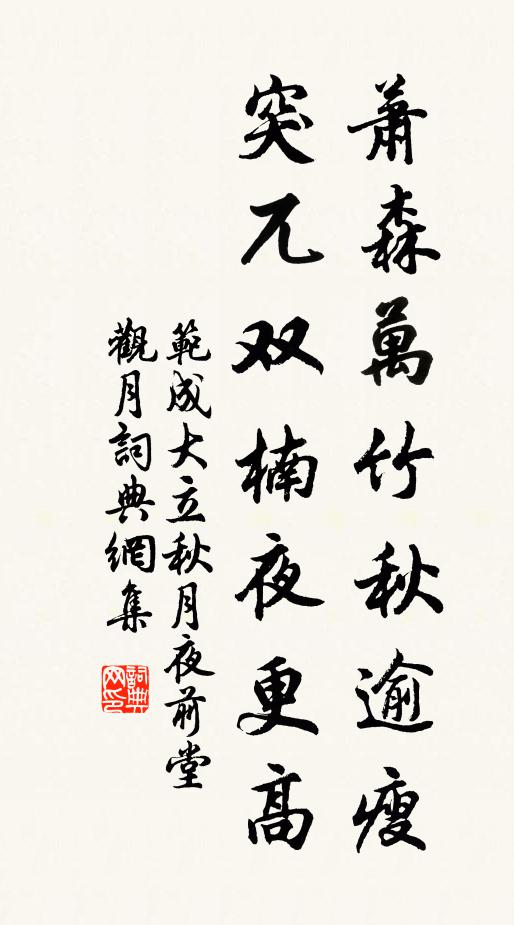 蕭森萬竹秋逾瘦
突兀双楠夜更高
範成大立秋月夜前堂
觀月詞典網集
詞典
网印